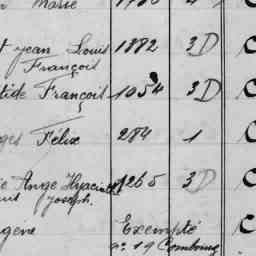 Marie
t jean Louis 1882 3D C
François
tide François 1054 3D C
ges Félix 284 1 C
ie Ange Hyacinthe 1265 3D C
Joseph
gène Exempté C
n° 19 Combourg